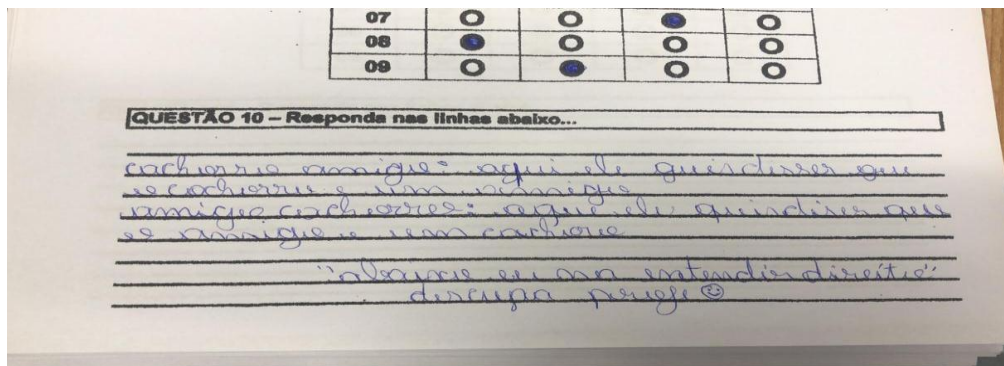 07
08
09
QUESTÃO 10 – Responda nas linhas abaixo...
cachorro amigo: aqui ele quis disser que
o cachorro e um amigo
amigo cachorro: aqui ele quis diser que
o amigo e um cachoro
"abaixo eu nan entendir direito"
discupa profe